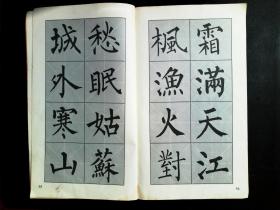 霜滿天江
楓漁火對
愁眠姑蘇
城外寒山